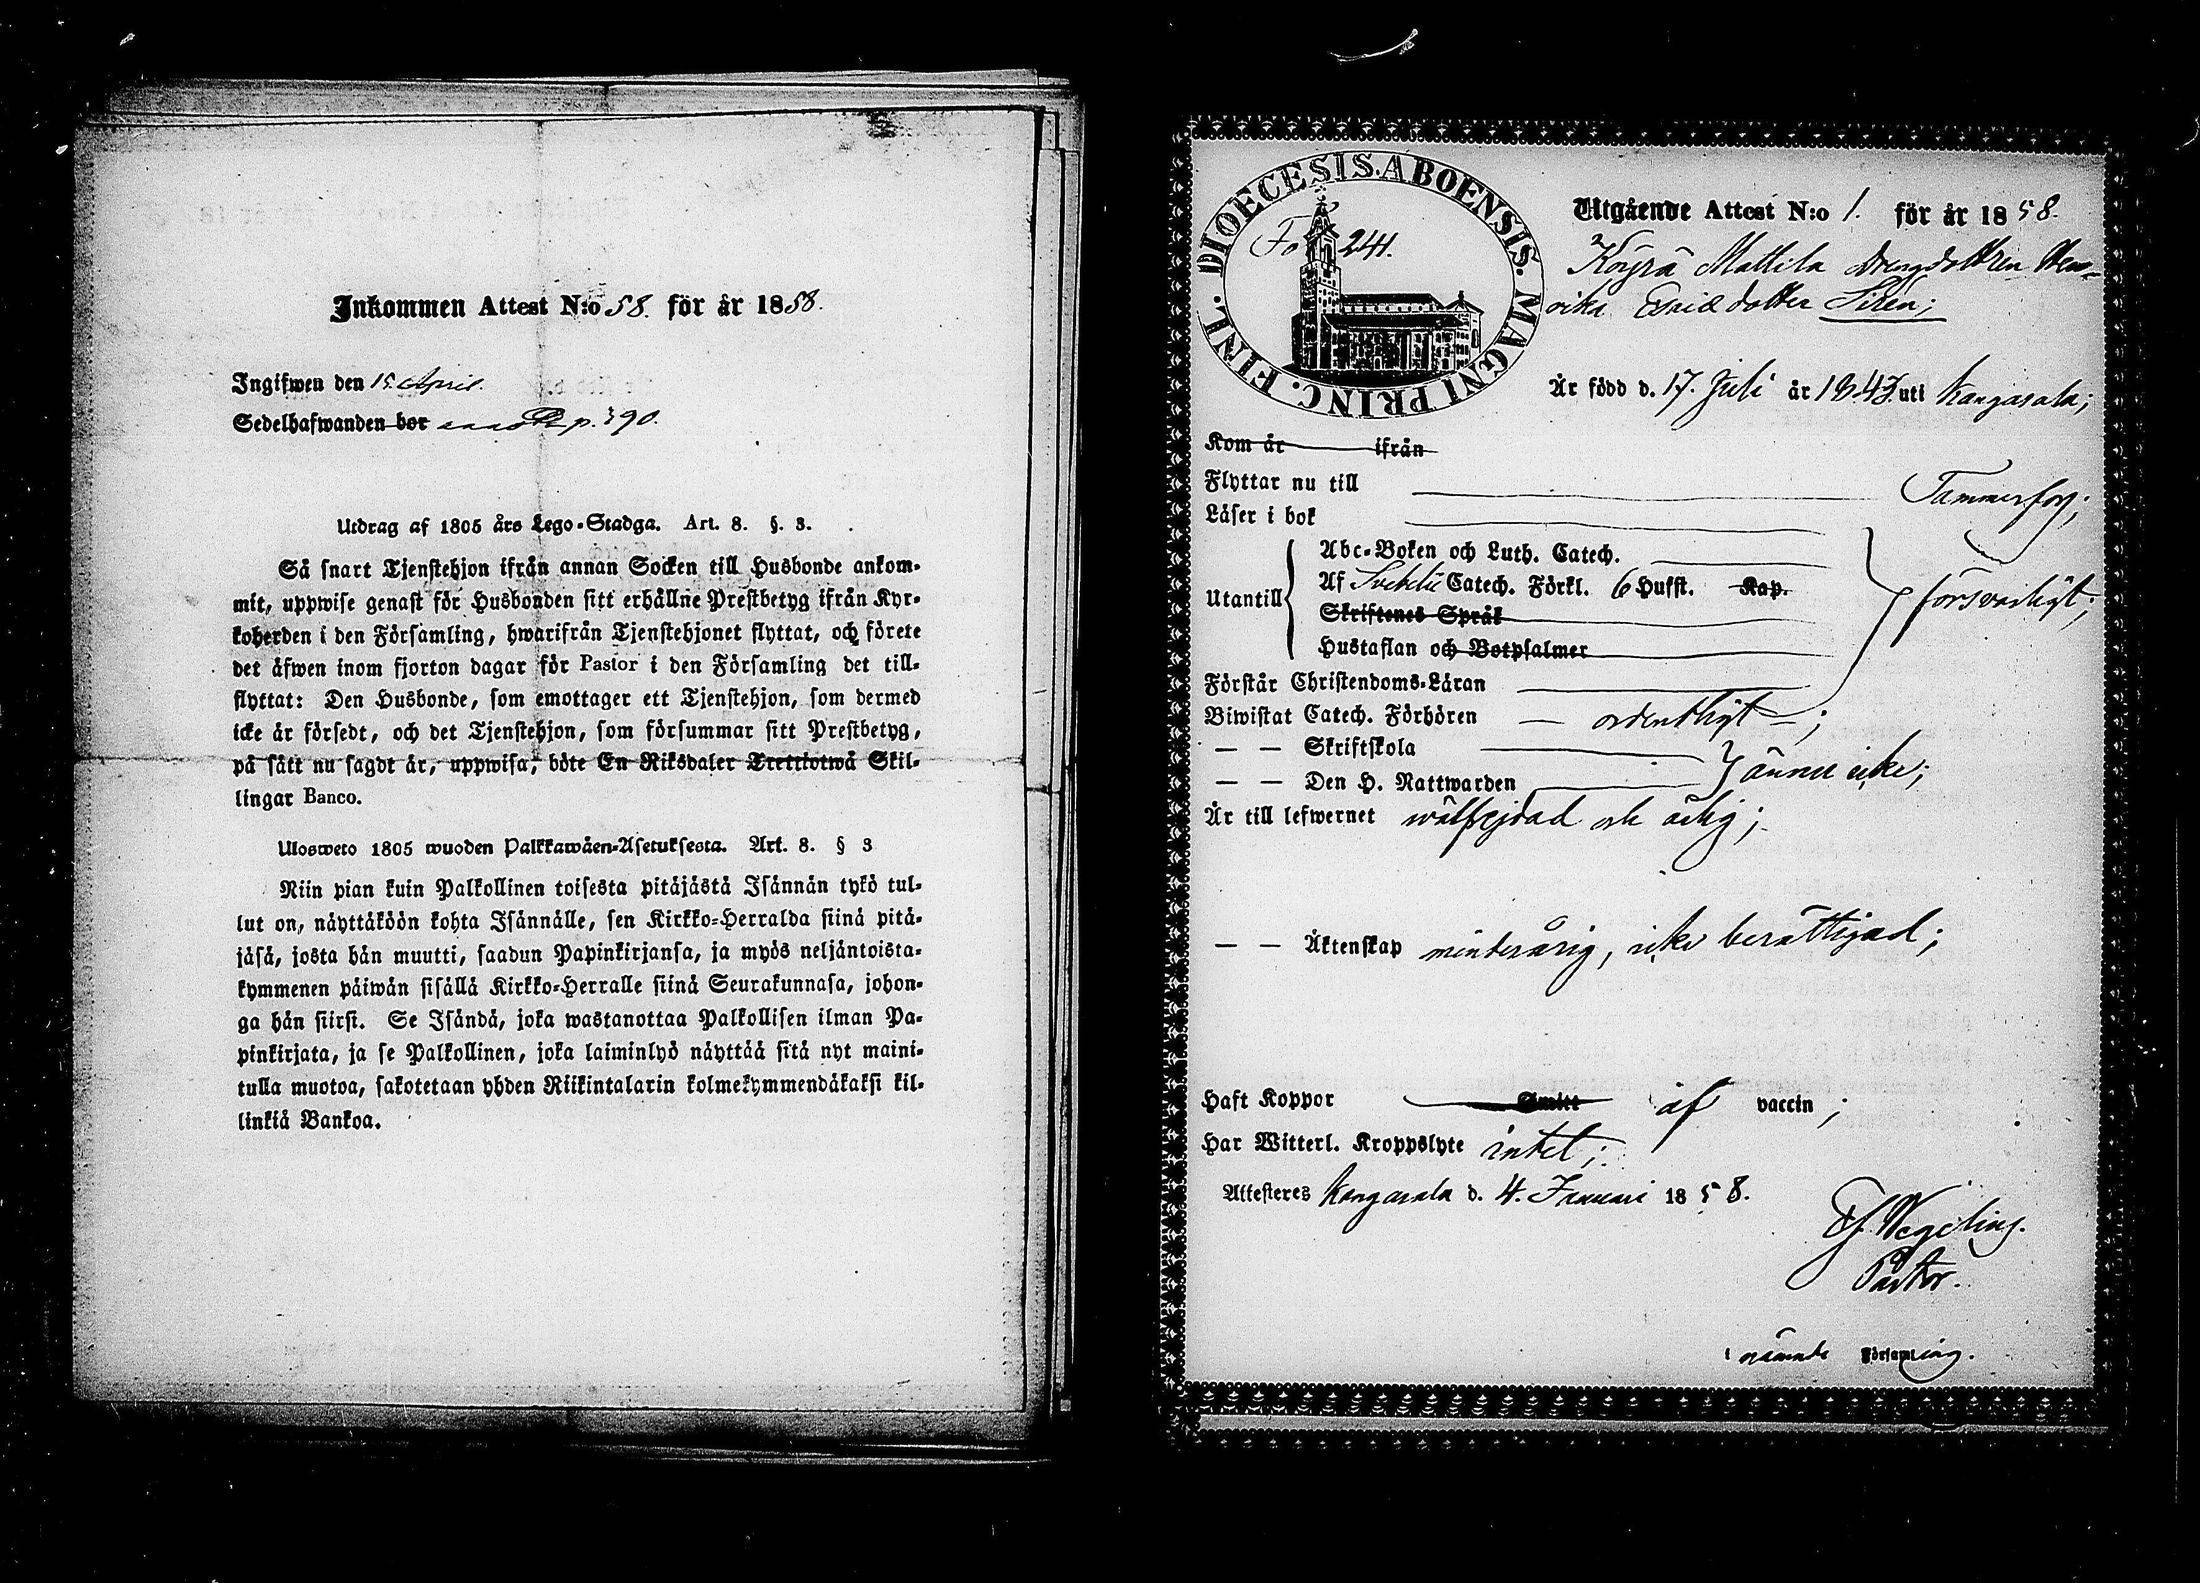 Inkommen Attest N:o 58. för år 1858.
Ingifwen den 15. April.
Sedelhafwanden bor p. 390.
Utdrag af 1805 års Lego-Stadga. Art. 8. §. 3.
Så snart Tjenstehjon ifrån annan Socken till Husbonde ankom-
mit, uppwise genast för Husbonden sitt erhållne Prestbetyg ifrån Kyr-
koherden i den Församling, hwarifrån Tjenstehjonet flyttat, och förete
det äfwen inom fjorton dagar för Pastor i den Församling det till-
flyttat: Den Husbonde, som emottager ett Tjenstehjon, som dermed
icke är försedt, och det Tjenstehjon, som försummar sitt Prestbetyg,
på sätt nu sagdt är, uppwisa, böte En Riksdaler Trettiotwå Skil-
lingar Banco.
Ulosweto 1805 wuoden Palkkawäen-Asetuksesta. Art. 8. § 3
Niin pian kuin Palkollinen toisesta pitäjästä Isännän tykö tul-
lut on, näyttäköön kohta Isännälle, sen Kirkko-Herralda siinä pitä-
jäsä, josta hän muutti, saadun Papinkirjansa, ja myös neljäntoista-
kymmenen päiwän sisällä Kirkko-Herralle siinä Seurakunnasa, johon-
ga hän siirsi. Se Isändä, joka wastanottaa Palkollisen ilman Pa-
pinkirjata, ja se Palkollinen, joka laiminlyö näyttää sitä nyt maini-
tulla muotoa, sakotetaan yhden Riikintalarin kolmekymmendäkaksi kil-
linkiä Bankoa.
DIOECESIS.ABOENSIS. MAGNI PRINC. FINL.
Fo 241.
Utgående Attest N:o 1. för år 1858.
Köyrä Mattila Drengdottren Hen-
rika Davidsdotter Sirén;
Är född d. 17. Juli år 1843 uti Kangasala;
Kom år ifrån
Flyttar nu till Tammerfors;
Läser i bok
Abc-Boken och Luth. Catech.
Utantill Af Svebelii Catech. Förkl. 6 Hufst. Kap. försvarligt;
Skriftenes Språk
Hustaflan och Botpsalmer
Förstår Christendoms-Läran
Biwistat Catech. Förhören — ordentligt —;
— — Skriftskola
— — Den H. Nattwarden } ännu icke;
Är till lefwernet wälfrejdad och ärlig;
— — Äktenskap minderårig, icke berättigad;
Haft Koppor Smitt af vaccin;
Har Witterl. Kroppslyte intet;
Attesteres Kangasala d. 4. Januari 1858.
Wegelius.
Pastor.
i nämnde Församling.